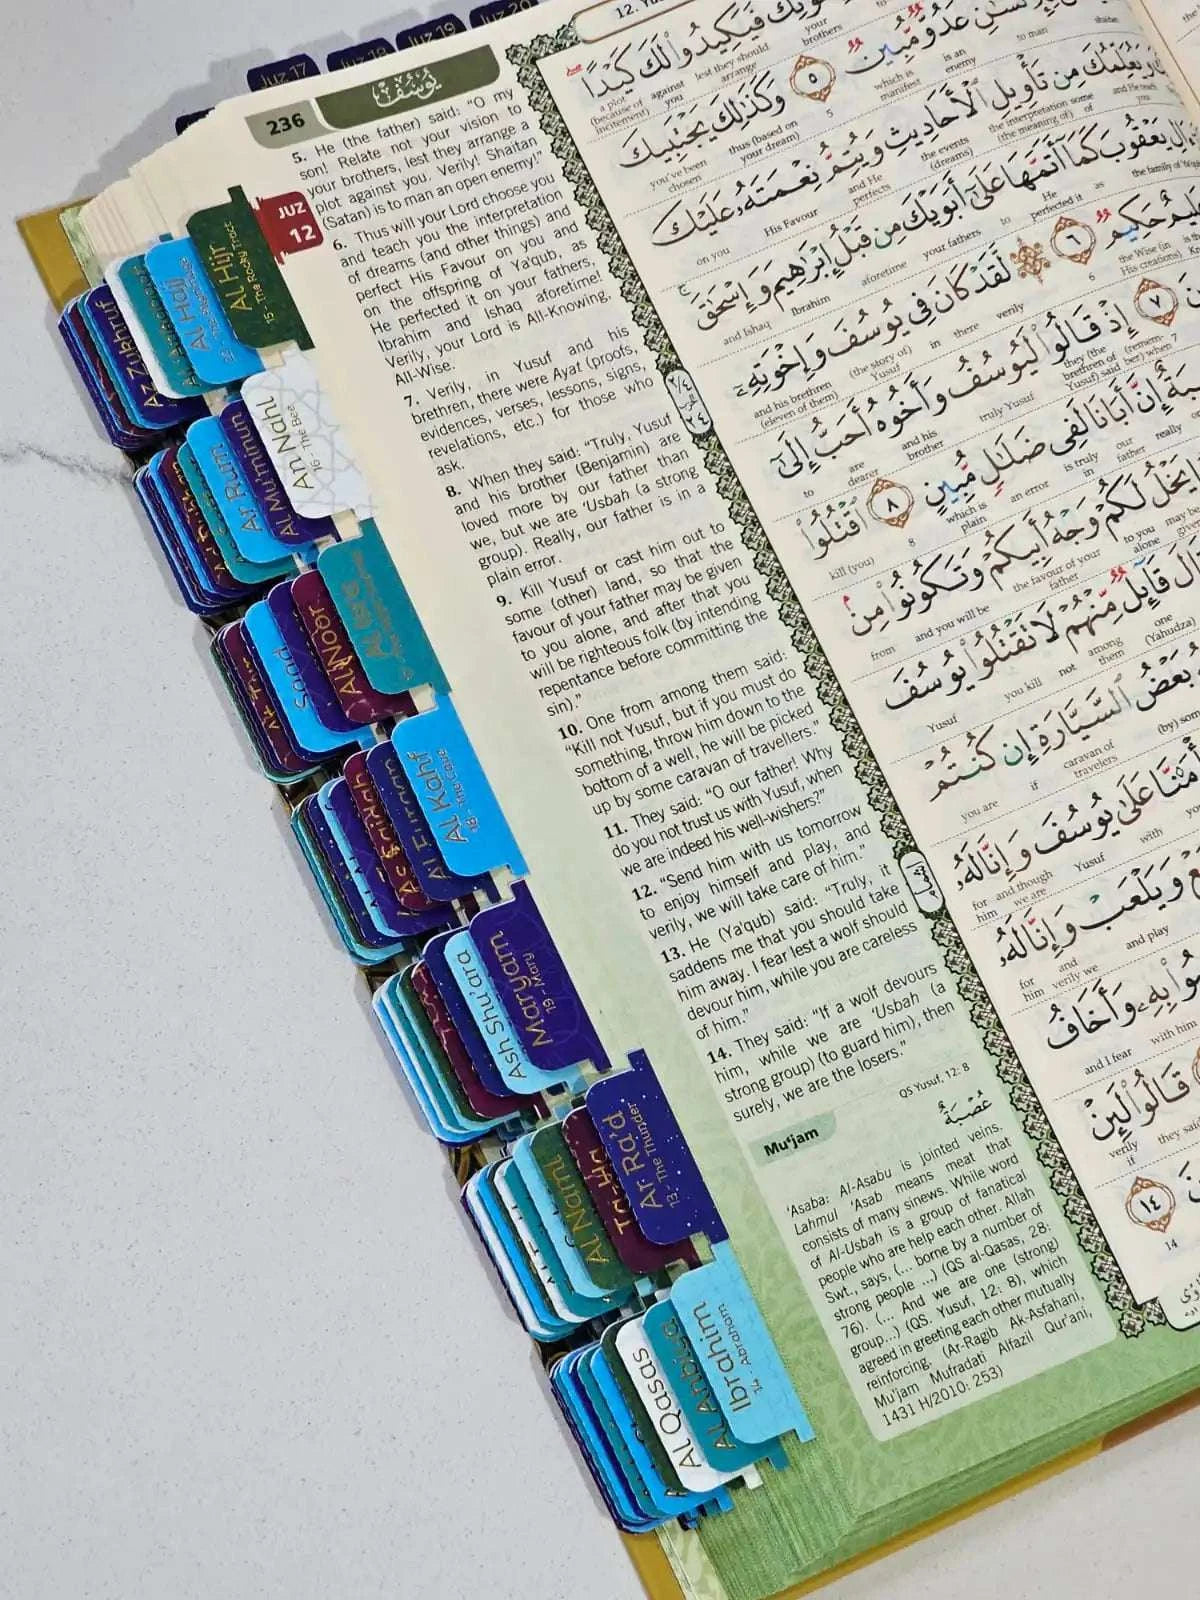 Juz 17
Juz 18
Juz 19
Juz 20
236
يُوسُف
JUZ
12
5. He (the father) said: "O my
son! Relate not your vision to
your brothers, lest they arrange a
plot against you. Verily! Shaitan
(Satan) is to man an open enemy!"
6. Thus will your Lord choose you
and teach you the interpretation
of dreams (and other things) and
perfect His Favour on you and
on the offspring of Ya'qub, as
He perfected it on your fathers,
Ibrahim and Ishaq aforetime!
Verily, your Lord is All-Knowing,
All-Wise.
7. Verily, in Yusuf and his
brethren, there were Ayat (proofs,
evidences, verses, lessons, signs,
revelations, etc.) for those who
ask.
8. When they said: "Truly, Yusuf
and his brother (Benjamin) are
loved more by our father than
we, but we are 'Usbah (a strong
group). Really, our father is in a
plain error.
9. Kill Yusuf or cast him out to
some (other) land, so that the
favour of your father may be given
to you alone, and after that you
will be righteous folk (by intending
repentance before committing the
sin)."
10. One from among them said:
"Kill not Yusuf, but if you must do
something, throw him down to the
bottom of a well, he will be picked
up by some caravan of travellers."
11. They said: "O our father! Why
do you not trust us with Yusuf, when
we are indeed his well-wishers?"
12. "Send him with us tomorrow
to enjoy himself and play, and
verily, we will take care of him."
13. He (Ya'qub) said: "Truly, it
saddens me that you should take
him away. I fear lest a wolf should
devour him, while you are careless
of him."
14. They said: "If a wolf devours
him, while we are 'Usbah (a
strong group) (to guard him), then
surely, we are the losers."
QS Yusuf, 12: 8
Mu'jam
عُصْبَةٌ
'Asaba: Al-Asabu is jointed veins.
Lahmul 'Asab means meat that
consists of many sinews. While word
of Al-Usbah is a group of fanatical
people who are help each other. Allah
Swt., says, (... borne by a number of
strong people ...) (QS al-Qasas, 28:
76). (... And we are one (strong)
group...) (QS. Yusuf, 12: 8), which
agreed in greeting each other mutually
reinforcing. (Ar-Ragib Ak-Asfahani,
Mu'jam Mufradati Alfazil Qur'ani,
1431 H/2010: 253)
Al Hijr
15 - The Rocky Tract
Al Hajj
Az Zukhruf
An Nahl
16 - The Bee
Al Mu'minun
Ar Rum
Al Isra
An Noor
Saad
Al Kahf
18 - The Cave
Al Furqan
Maryam
19 - Mary
Ash Shu'ara
Ar Ra'd
13 - The Thunder
Ta-Ha
Al Naml
Ibrahim
14 - Abraham
Al Anbiya
Al Qasas
فَيَكِيدُوا۟ لَكَ كَيْدًا
a plot
(because of
incitement)
against
you
lest they should
arrange
your
brothers
عَدُوٌّ مُّبِينٌ ٥ وَكَذَٰلِكَ يَجْتَبِيكَ
you've been
chosen
thus (based on
your dream)
5
which is
manifest
is an
enemy
to man
مِن تَأْوِيلِ ٱلْأَحَادِيثِ وَيُتِمُّ نِعْمَتَهُۥ عَلَيْكَ
on you
His Favour
and He
perfects
the events
(dreams)
the interpretation
(the meaning of)
some
of
يَعْقُوبَ كَمَآ أَتَمَّهَا عَلَىٰٓ أَبَوَيْكَ مِن قَبْلُ إِبْرَٰهِيمَ وَإِسْحَٰقَ
and Ishaq
Ibrahim
aforetime
your fathers
to
He
perfected it
as
حَكِيمٌ ٦ لَّقَدْ كَانَ فِى يُوسُفَ وَإِخْوَتِهِۦٓ
and his brethren
(eleven of them)
(the story of)
Yusuf
in
there
verily
6
٧ إِذْ قَالُوا۟ لَيُوسُفُ وَأَخُوهُ أَحَبُّ إِلَىٰٓ
to
are
dearer
and his
brother
truly Yusuf
they (the
brethren of
Yusuf) said
(remem-
ber) when
7
إِنَّ أَبَانَا لَفِى ضَلَٰلٍ مُّبِينٍ ٨ ٱقْتُلُوا۟
kill (you)
8
which is
plain
an error
in
is truly
our
father
really
يَخْلُ لَكُمْ وَجْهُ أَبِيكُمْ وَتَكُونُوا۟ مِنۢ
from
and you will be
the favour of your
father
to you
alone
قَآئِلٌ مِّنْهُمْ لَا تَقْتُلُوا۟ يُوسُفَ
Yusuf
you kill
not
among
them
one
(Yahudza)
بَعْضُ ٱلسَّيَّارَةِ إِن كُنتُمْ
you are
if
caravan of
travelers
عَلَىٰ يُوسُفَ وَإِنَّا لَهُۥ
for
him
and though
we are
Yusuf
with
وَيَلْعَبْ وَإِنَّا لَهُۥ
for
him
and
verily we
and play
بِهِۦ وَأَخَافُ
and I fear
with him
قَالُوا۟ لَئِنْ
verily
if
they said
١٤
14